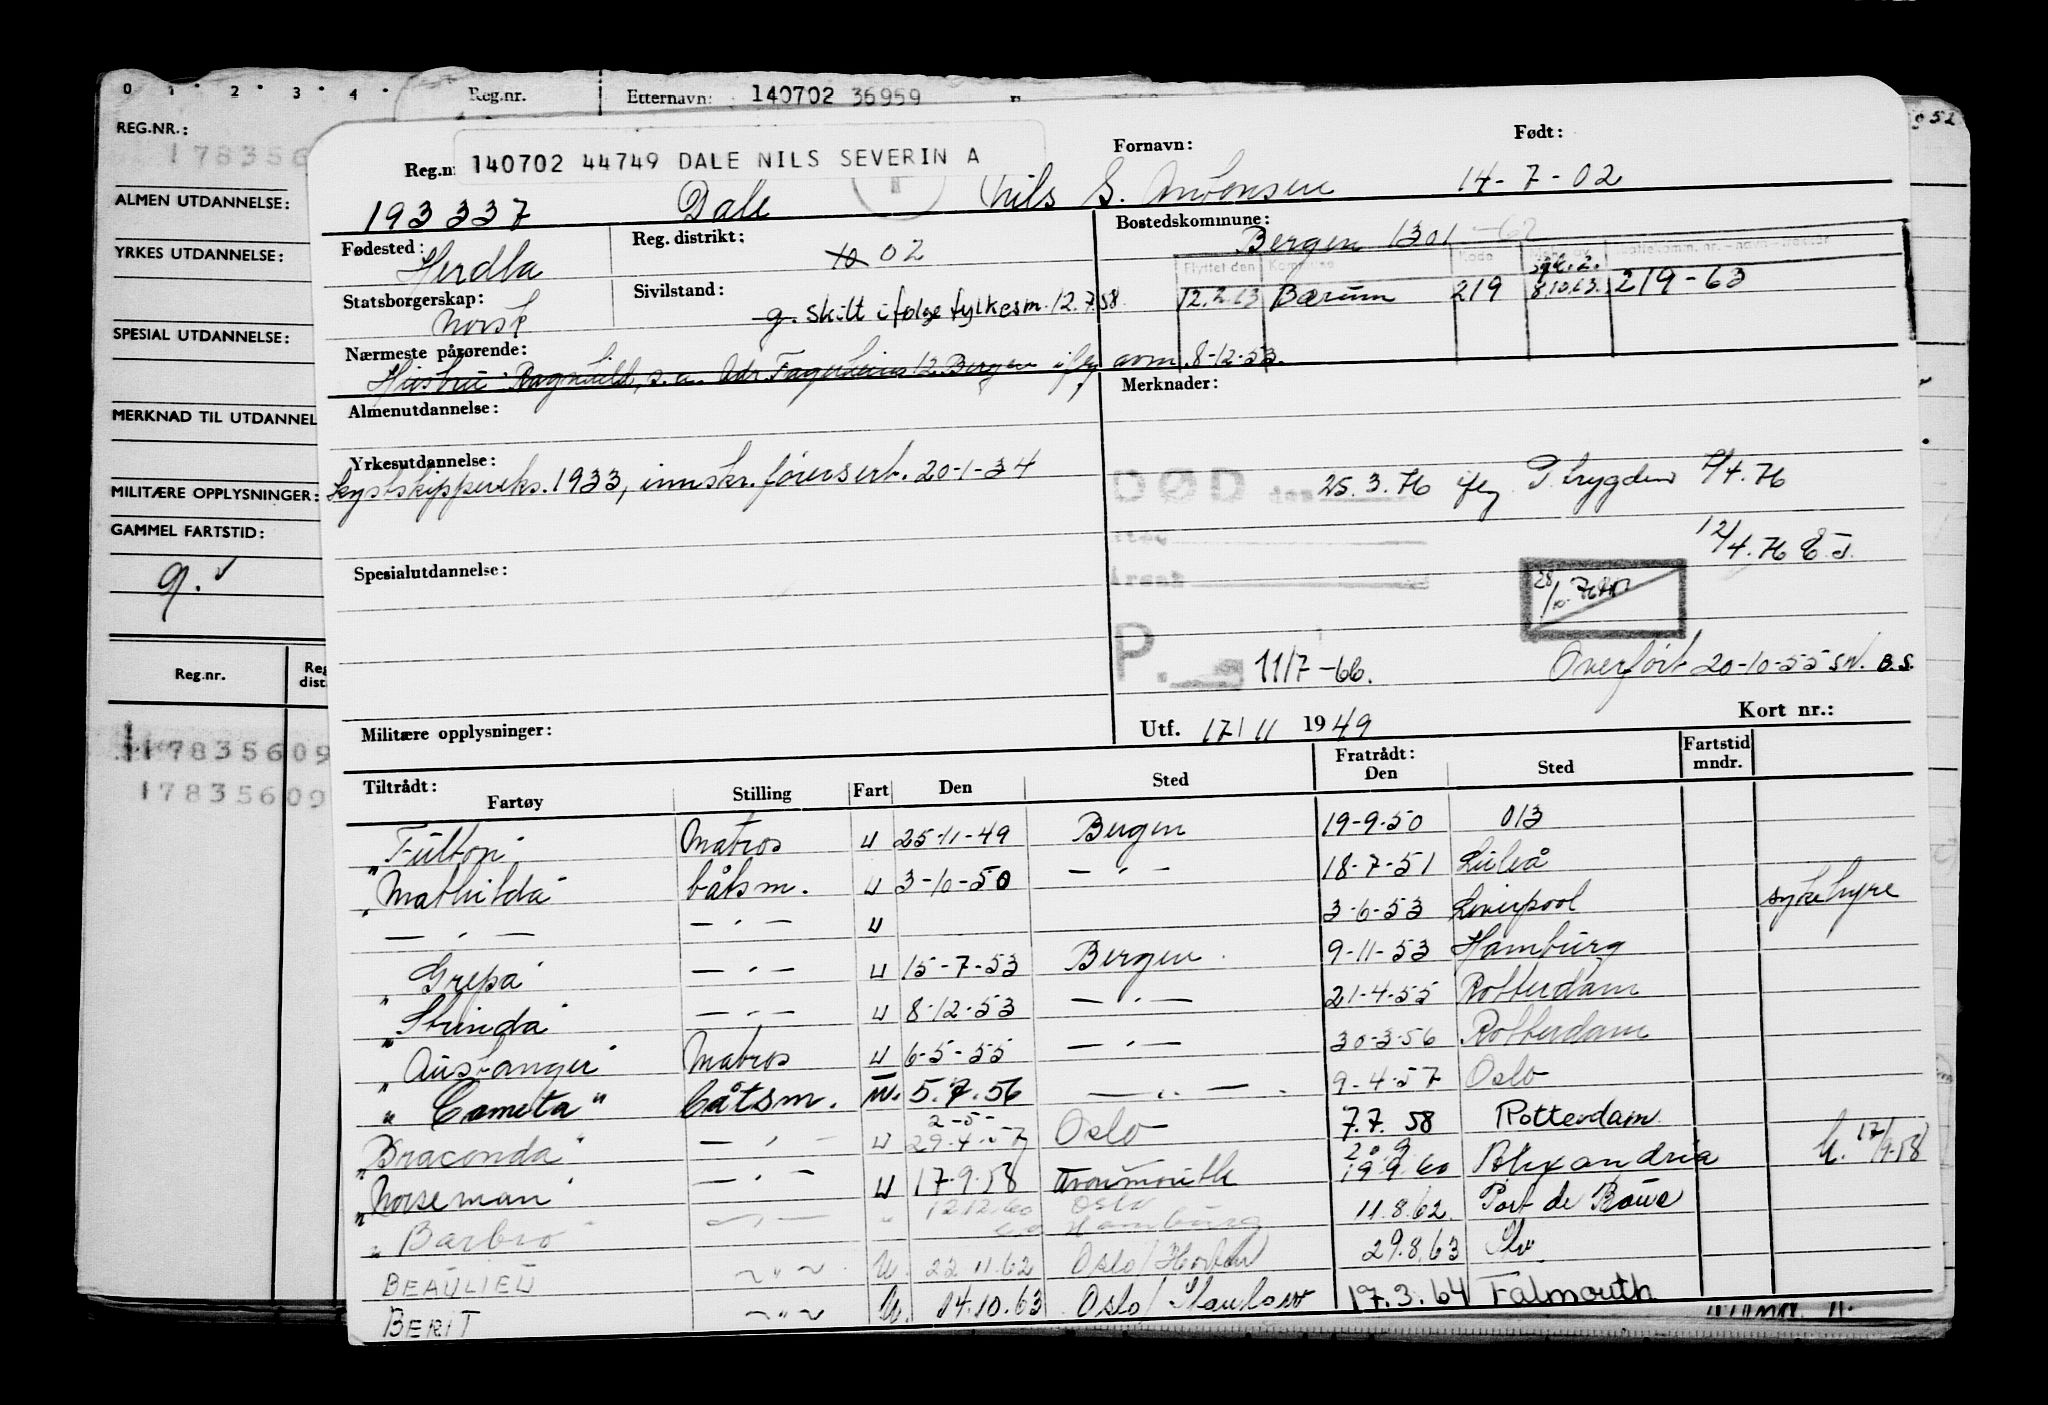 0 1 2 3 4
Reg.nr. Etternavn: 140702 36959
REG.NR.:
178356
ALMEN UTDANNELSE:
YRKES UTDANNELSE:
SPESIAL UTDANNELSE:
MERKNAD TIL UTDANNEL
MILITÆRE OPPLYSNINGER:
GAMMEL FARTSTID:
g.
Reg.nr. Reg dist.
17835609
17835609
52
Reg.n 140702 44749 DALE NILS SEVERIN A Fornavn: Født:
193337 Dale Nils S. 14-7-02
Fødested: Herdla Reg. distrikt: 10 02 Bostedskommune: Bergen 1301 -62
Flyttet den Kommune Kode
Statsborgerskap: Norsk Sivilstand: g. skilt ifølge fylkesm. 12.7.58 12.2.63 Bærum 219 8.10.63. 219-63
Nærmeste pårørende: Hustru Ragnhild, s.a. Adr. 12 Bergen iføg avm. 8-12-53.
Almenutdannelse: Merknader:
Yrkesutdannelse:
kystskippereks. 1933, innskr. førersert. 20-1-34
DØD den 25.3.76 iflg P.trygden 7/4.76
12/4.76 E.J.
Årsak
Spesialutdannelse:
28/10-76
P. 11/7-66. Overført 20-10-55 SW. B.S.
Militære opplysninger: Utf. 17/11 1949 Kort nr.:
Tiltrådt: Fratrådt: Fartstid mndr.
Fartøy Stilling Fart Den Sted Den Sted
"Fulton" Matros u 25-11-49 Bergen 19-9-50 013
"Mathilda" båtsm. u 3-10-50 — " — 18-7-51 Luleå
— " — — " — u 3-6-53 Liverpool sykehyre
"Grepa" — " — u 15-7-53 Bergen 9-11-53 Hamburg
"Strinda" — " — u 8-12-53 — " — 21-4-55 Rotterdam
"Austanger" Matros u 6-5-55 — " — 30-3-56 Rotterdam
"Cometa" båtsm. u. 5.7.56 — " — 9-4-57 Oslo
2-5-
"Braconda" — " — u 29-4-57 Oslo 7.7.58 Rotterdam
20 9
"Norseman" — " — u 17-9-58 19.9.60 17/9-58
"Barbro" — " — " 12.12.60 Oslo Hamburg 11.8.62. Port de Bouc
BEAULIEU — " — u. 22.11.62 Oslo/Horten 29.8.63
BERIT — " — u. 14.10.63 Oslo/ 17.3.64 Falmouth